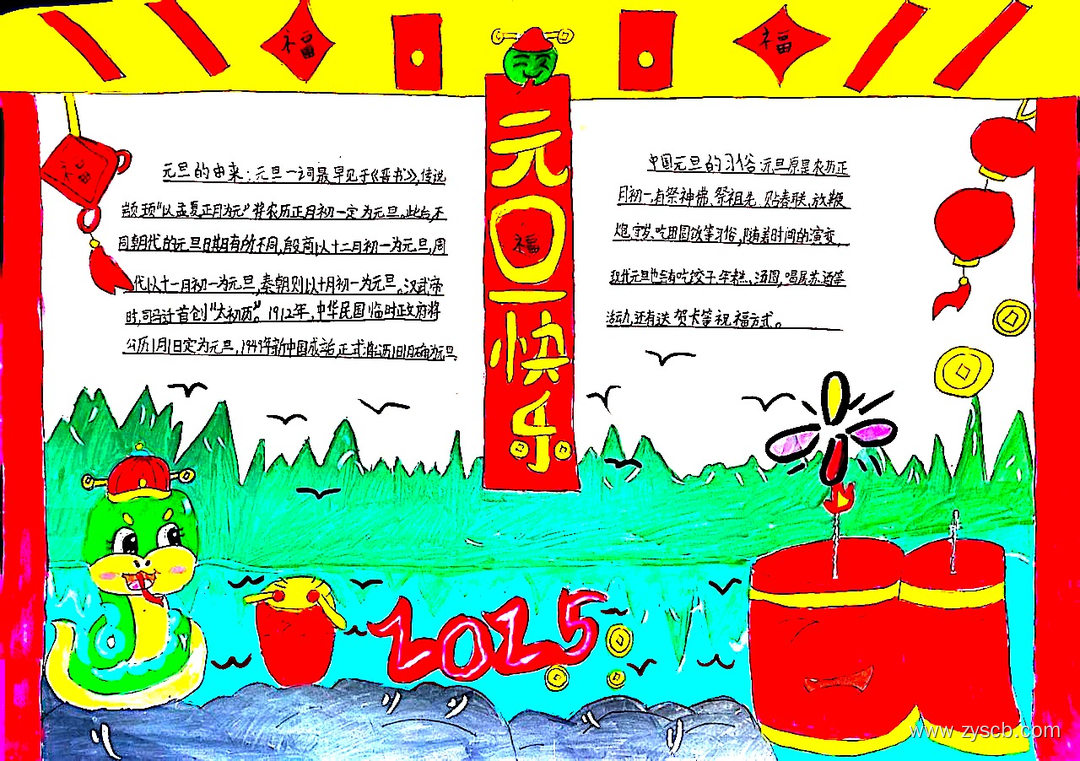 福
福
元旦快乐
福
元旦的由来:元旦一词最早见于《晋书》,传说
颛顼"以孟夏正月为元",将农历正月初一定为元旦。此后,不
同朝代的元旦日期有所不同,殷商以十二月初一为元旦,周
代以十一月初一为元旦,秦朝则以十月初一为元旦。汉武帝
时,司马迁首创"太初历"。1912年,中华民国临时政府将
公历1月1日定为元旦,1949年新中国成治,正式将公历1月1日
中国元旦的习俗:元旦原是农历正
月初一,有祭神佛、祭祖先、贴春联、放鞭
炮、守岁、吃团圆饭等习俗,随着时间的演变,
现代元旦也会有吃饺子、年糕、汤圆,喝屠苏酒等
活动,还有送贺卡等祝福方式。
2025
www.zyscb.com